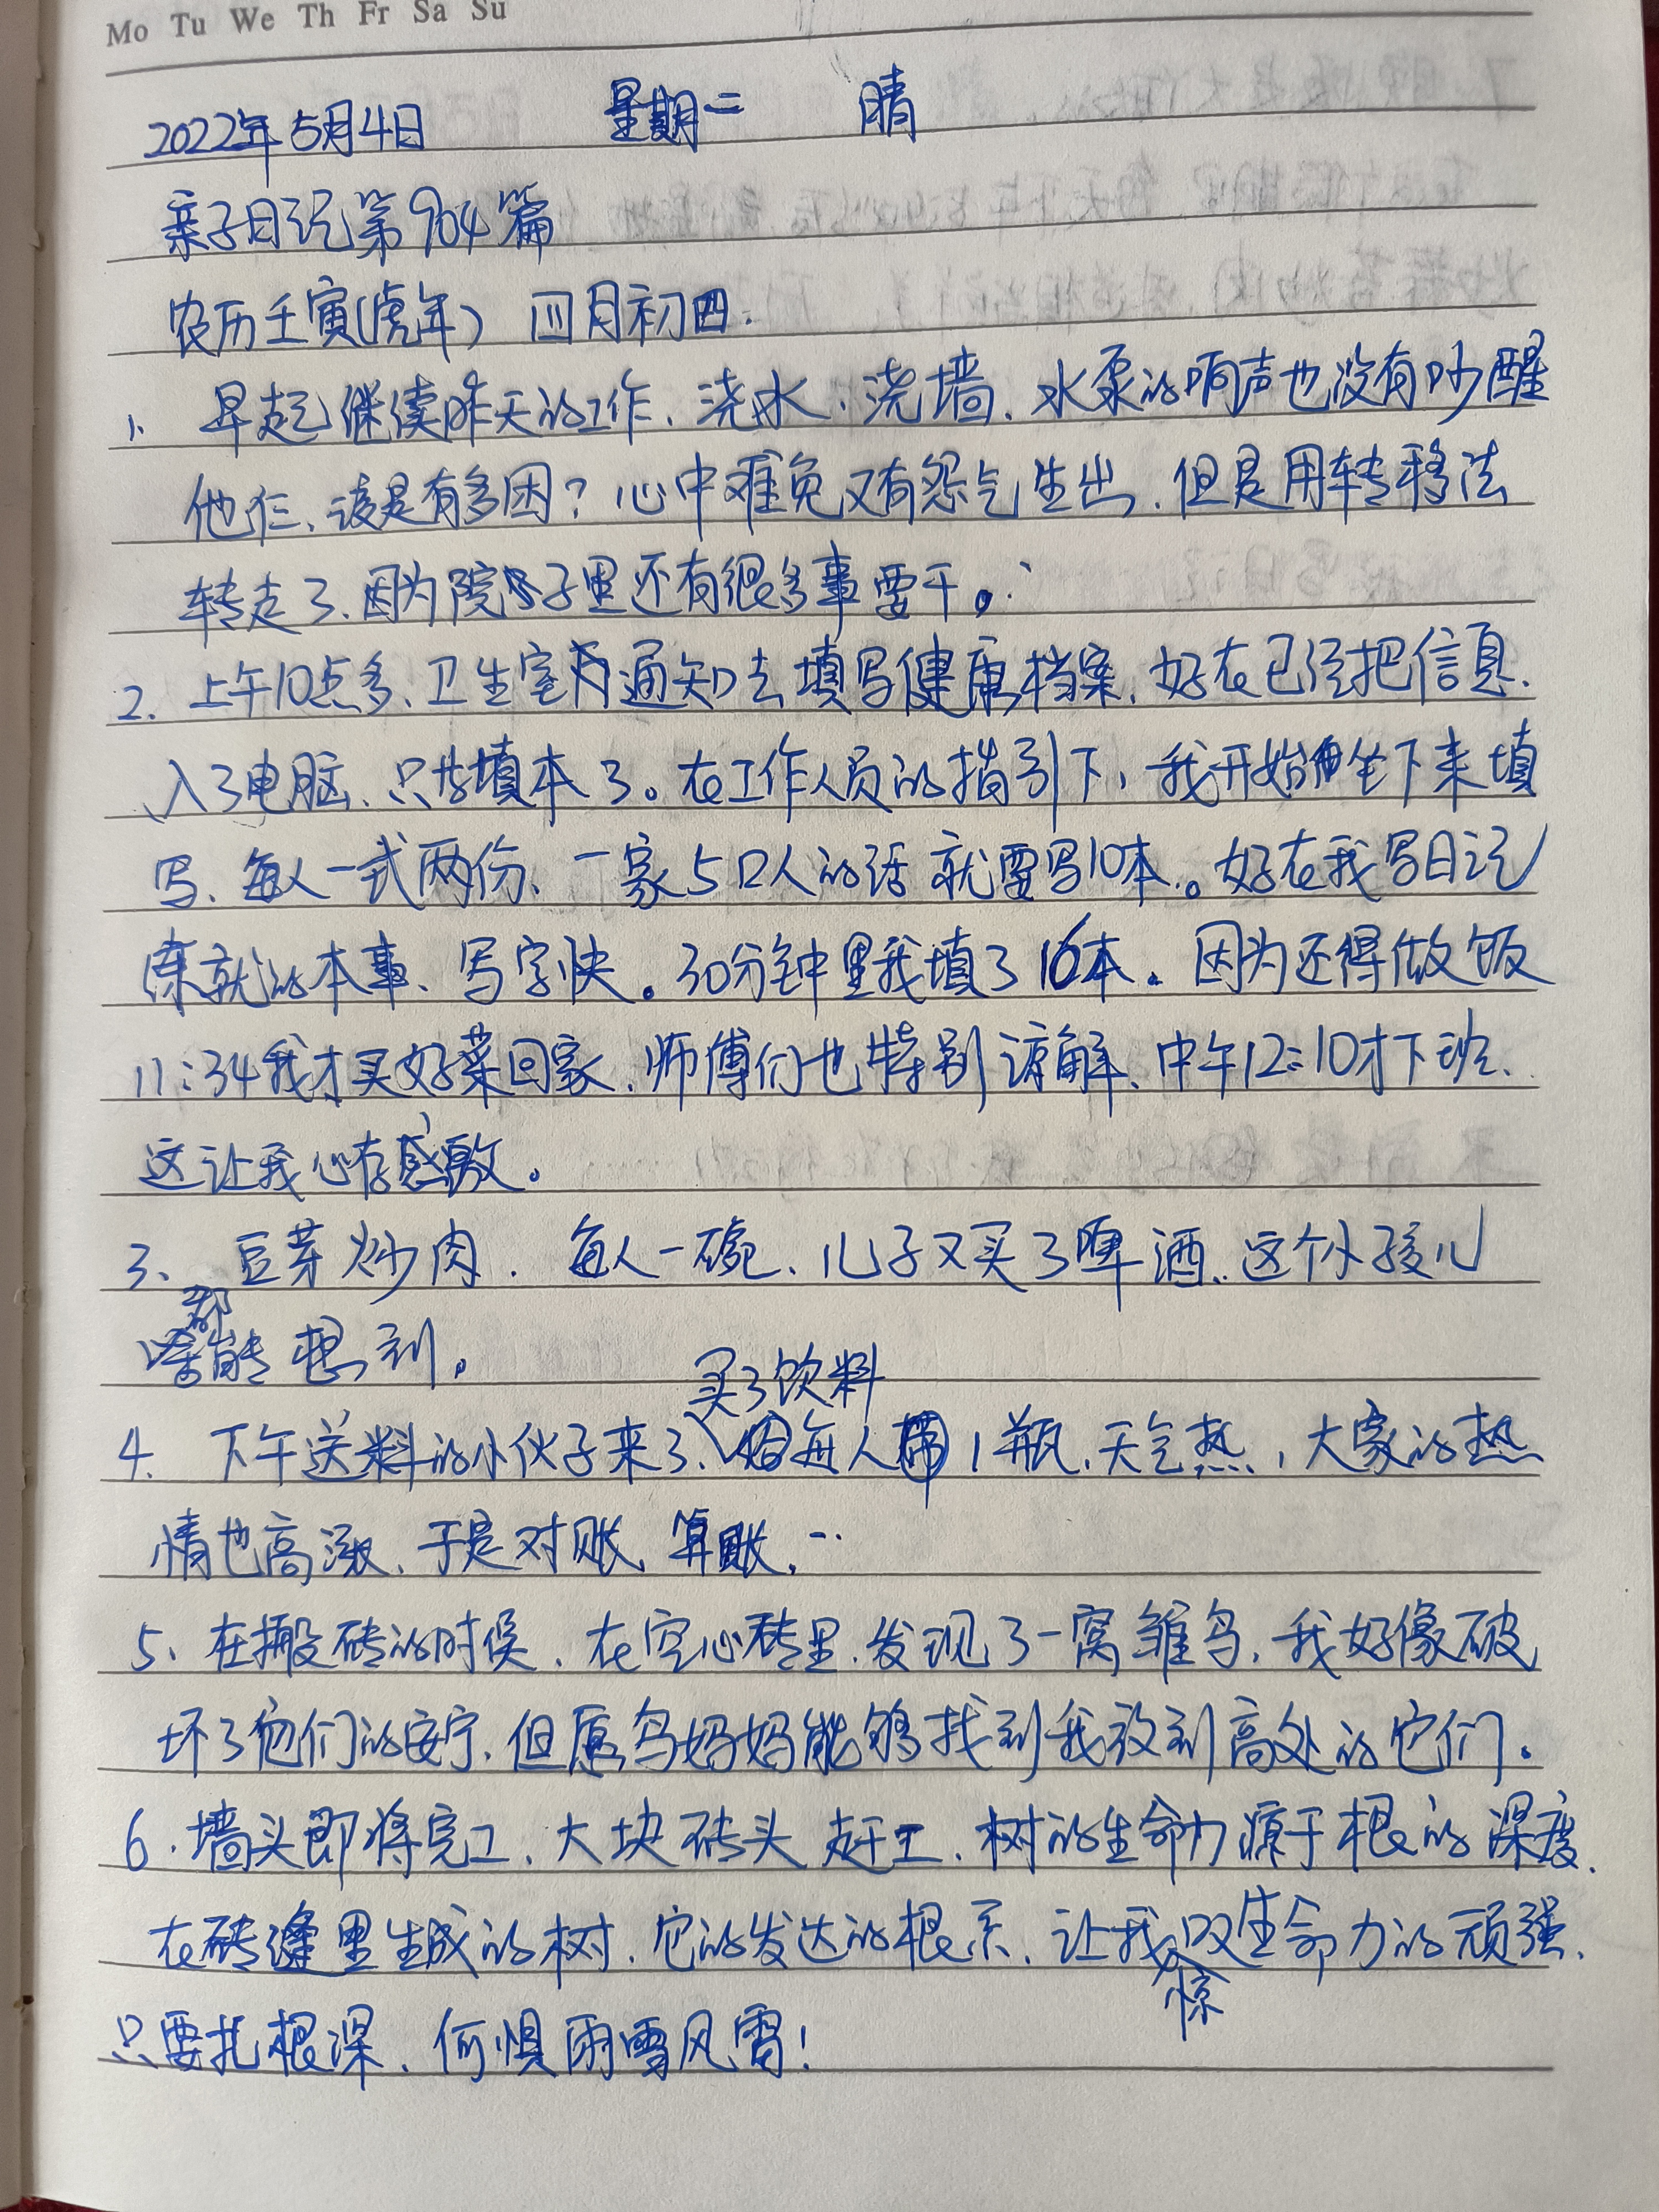 Mo Tu We Th Fr Sa Su
2022年5月4日 星期二 晴
亲子日记第904篇
农历壬寅(虎年) 四月初四.
1、早起继续昨天的工作、浇水、浇墙、水泵的响声也没有吵醒
他仨、该是有多困？心中难免又有怨气生出、但是用转移法
转走了、因为院子里还有很多事要干。
2. 上午10点多、卫生室通知去填写健康档案、好在已经把信息
入了电脑、只填本了。在工作人员的指引下、我开始坐下来填
写、每人一式两份、一家5口人的话就要写10本。好在我写日记
练就的本事、写字快。30分钟里我填了16本。因为还得做饭
11:34我才买好菜回家、师傅们也特别谅解、中午12:10才下班、
这让我心存感激。
3、豆芽炒肉、每人一碗、儿子又买了啤酒、这个小孩儿
啥都能想到。
4. 下午送料的小伙子来了、买了饮料给每人带1瓶、天气热，大家的热
情也高涨、于是对账、算账…
5、在搬砖的时候、在空心砖里、发现了一窝雏鸟、我好像破
坏了他们的安宁、但愿鸟妈妈能够找到我放到高处的它们。
6、墙头即将完工、大块砖头赶工、树的生命力源于根的深度、
在砖缝里生成的树、它的发达的根系、让我惊叹生命力的顽强、
只要扎根深、何惧雨雪风雷！